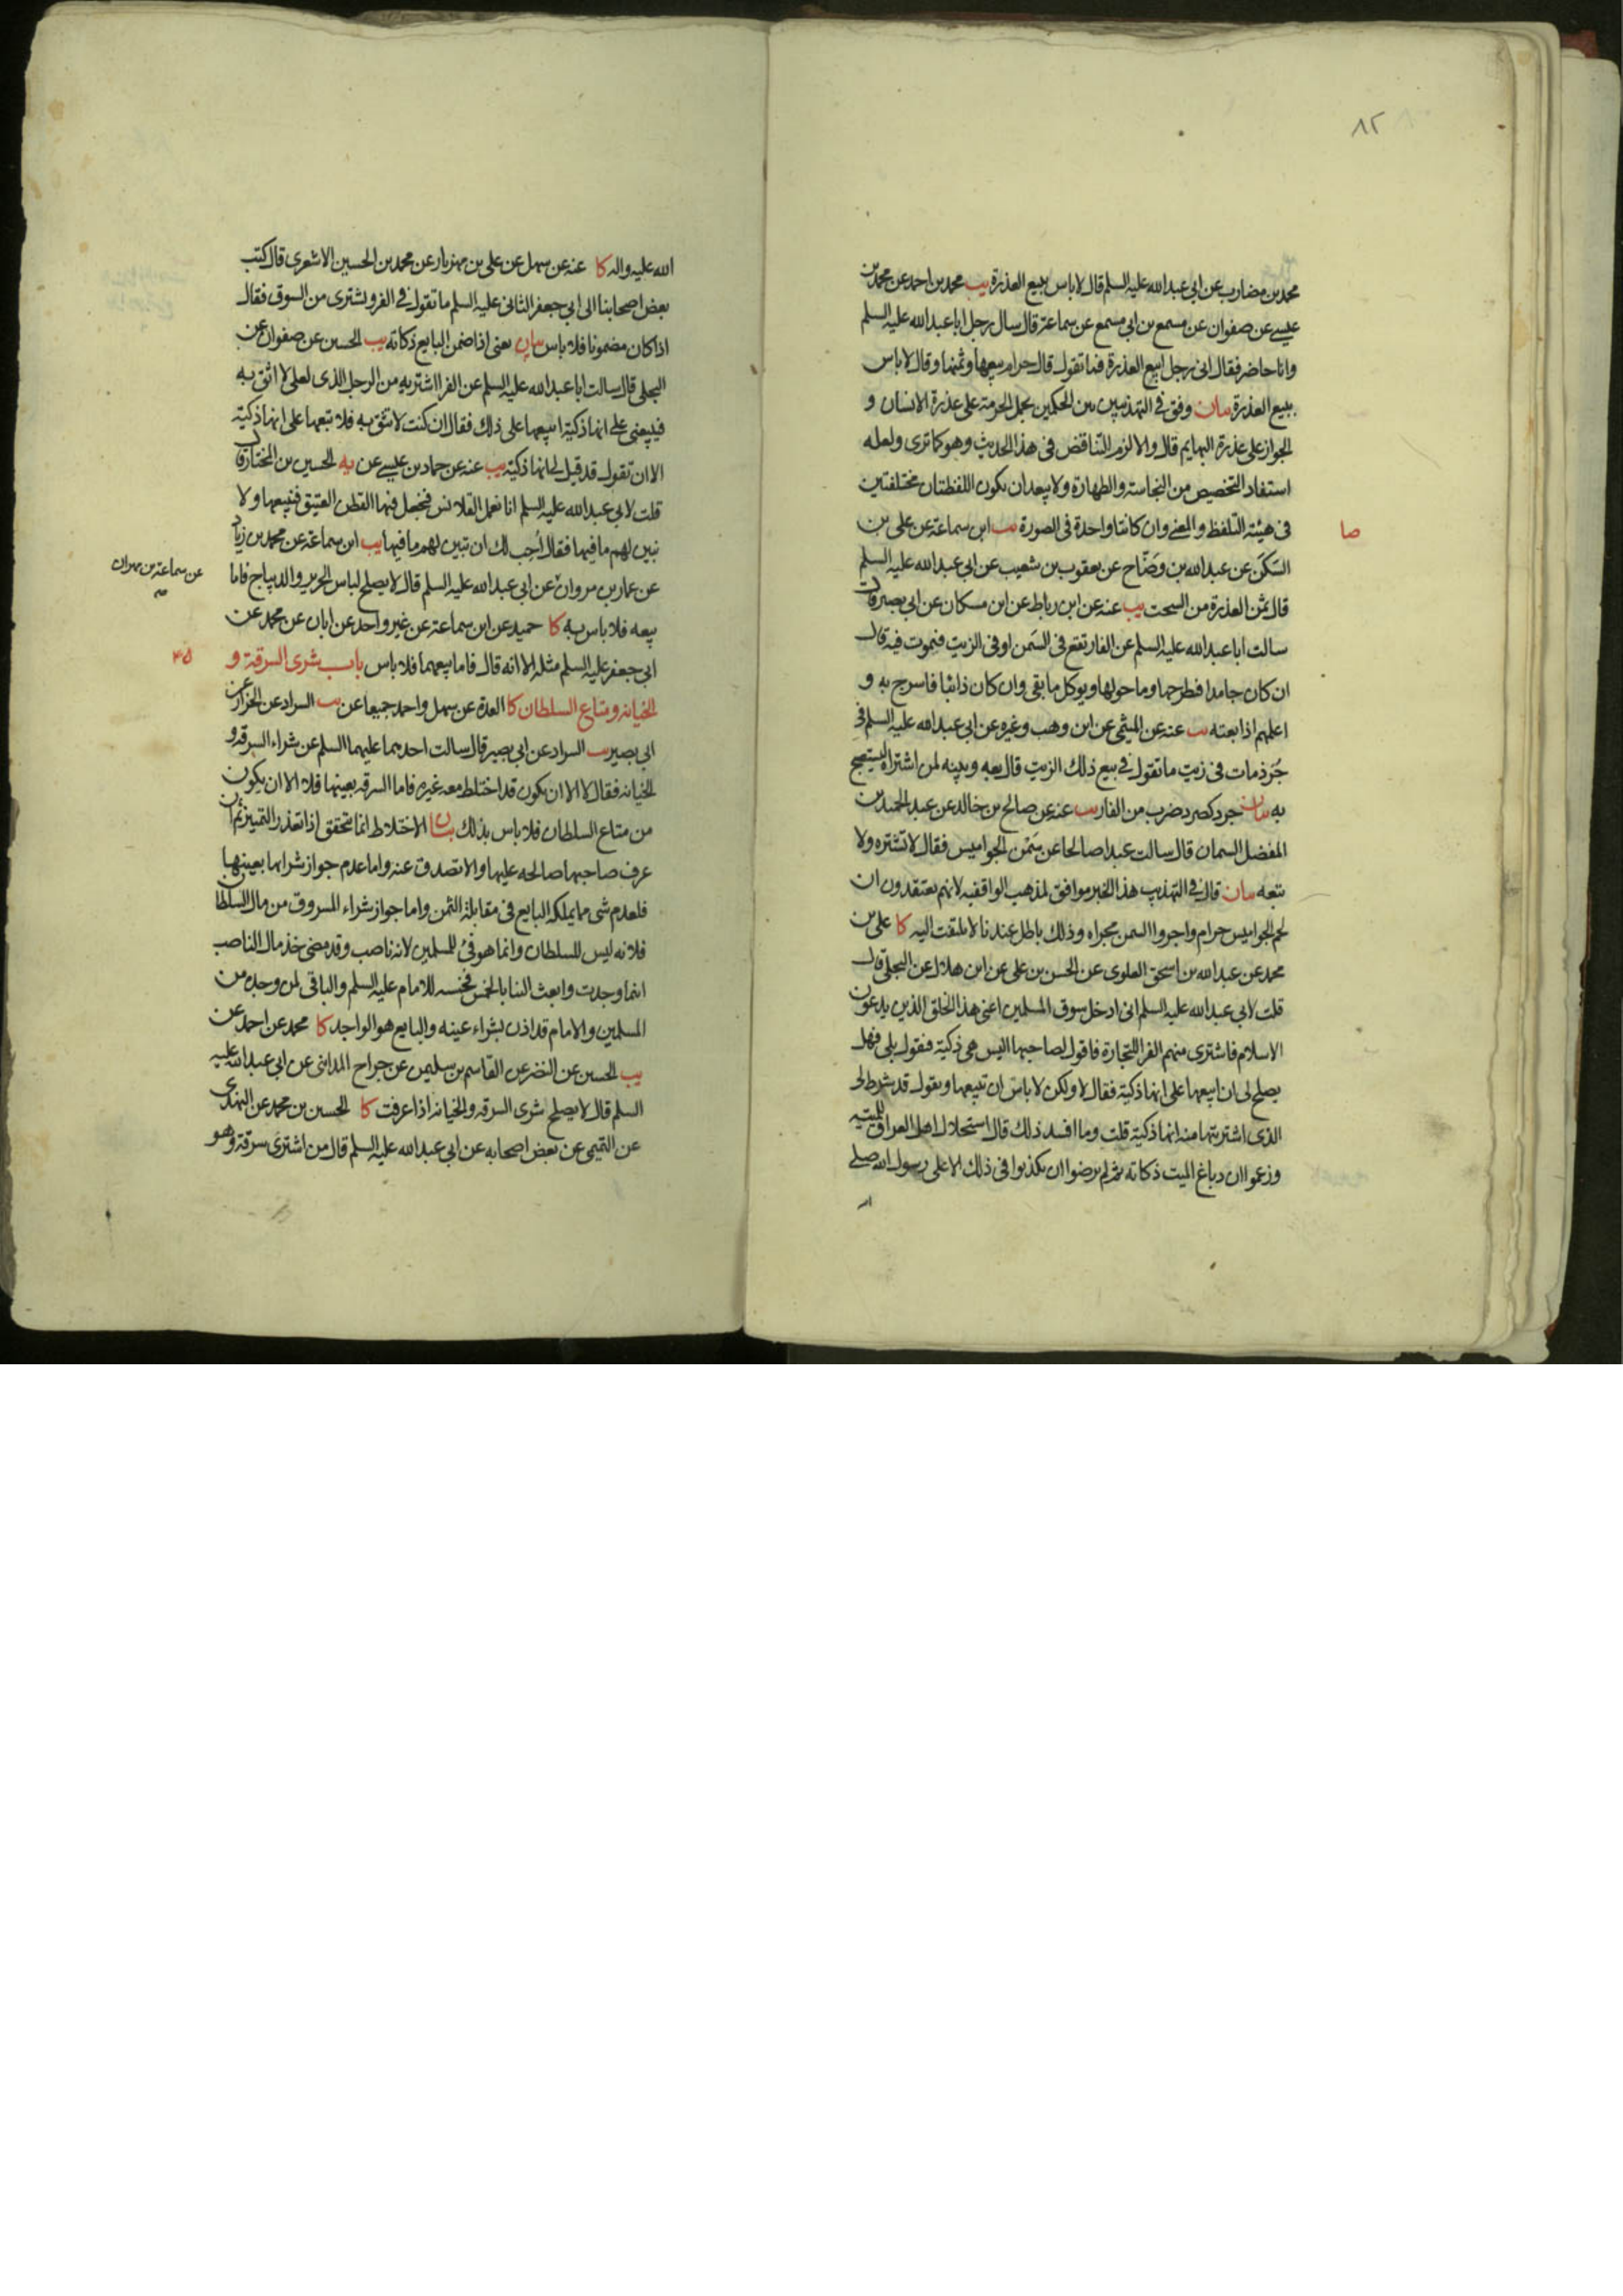 ٨٢
محمد بن مضارب عن ابي عبد الله عليه السلم قال لا باس ببيع العذرة يب محمد بن احمد عن محمد بن
عيسى عن صفوان عن مسمع بن ابي مسمع عن سماعة قال سال رجل ابا عبد الله عليه السلم
وانا حاضر فقال اني رجل ابيع العذرة فما تقول قال حرام بيعها وثمنها وقال لا باس
ببيع العذرة بيان وفق في التهذيبين بين الحكمين بحمل الحرمة على عذرة الانسان و
الجواز على عذرة البهايم قال والا لزم التناقض في هذا الحديث وهو كما ترى ولعله
استفاد التخصيص من النجاسة والطهارة ولا يبعد ان يكون اللفظتان مختلفتين
في هيئة التلفظ والمعنى وان كانتا واحدة في الصورة يب ابن سماعة عن علي بن
صا
السكن عن عبد الله بن وضاح عن يعقوب بن شعيب عن ابي عبد الله عليه السلم
قال ثمن العذرة من السحت يب عنه عن ابن رباط عن ابن مسكان عن ابي بصير قال
سالت ابا عبد الله عليه السلم عن الفار تقع في السمن او في الزيت فتموت فيه قال
ان كان جامدا فطرحها وما حولها ويوكل ما بقي وان كان ذائبا فاسرج به و
اعلمهم اذا بعته يب عنه عن الميثمي عن ابن وهب وغيره عن ابي عبد الله عليه السلم في
جرذ مات في زيت ما تقول في بيع ذلك الزيت قال بعه وبينه لمن اشتراه ليستصبح
به بيان جرذ كصرد ضرب من الفار يب عنه عن صالح بن خالد عن عبد الحميد بن
المفضل السمان قال سالت عبدا صالحا عن سمن الجواميس فقال لا تشتره ولا
تبعه بيان قال في التهذيب هذا الخبر موافق لمذهب الواقفيه لانهم يعتقدون ان
لحم الجواميس حرام واجروا السمن مجراه وذلك باطل عندنا لا يلتفت اليه كا علي بن
محمد عن عبد الله بن اسحق العلوي عن الحسن بن علي عن ابن هلال عن البجلي قال
قلت لابي عبد الله عليه السلم اني ادخل سوق المسلمين اعني هذا الخلق الذين يدعون
الاسلام فاشتري منهم الفرا للتجارة فاقول لصاحبها اليس هي ذكية فيقول بلى فهل
يصلح لي ان ابيعها على انها ذكية فقال لا ولكن لا باس ان تبيعها وتقول قد شرط لي
الذي اشتريتها منه انها ذكية قلت وما افسد ذلك قال استحلال اهل العراق للميتة
وزعموا ان دباغ الميت ذكاته ثم لم يرضوا ان يكذبوا في ذلك الا على رسول الله صلى
الله عليه واله كا عنه عن سهل عن علي بن مهزيار عن محمد بن الحسين الاشعري قال كتب
بعض اصحابنا الى ابي جعفر الثاني عليه السلم ما تقول في الفرو يشترى من السوق فقال
اذا كان مضمونا فلا باس بيان يعني اذا ضمن البايع ذكاته يب الحسين عن صفوان عن
البجلي قال سالت ابا عبد الله عليه السلم عن الفرا اشتريه من الرجل الذي لعلي لا اثق به
فيبيعني على انها ذكية ابيعها على ذلك فقال ان كنت لا تثق به فلا تبعها على انها ذكية
الا ان تقول قد قيل لي انها ذكية يب عنه عن حماد بن عيسى عن يه الحسين بن المختار قال
قلت لابي عبد الله عليه السلم انا نعمل القلانس فنجعل فيها القطن العتيق فنبيعها ولا
نبين لهم ما فيها فقال احب لك ان تبين لهم ما فيها يب ابن سماعة عن محمد بن زياد
عن سماعة بن مهران
عن عمار بن مروان عن ابي عبد الله عليه السلم قال لا يصلح لباس الحرير والديباج فاما
بيعه فلا باس به كا حميد عن ابن سماعة عن غير واحد عن ابان عن محمد عن
ابي جعفر عليه السلم مثله الا انه قال فاما بيعهما فلا باس باب شرى السرقة و
٤٥
الخيانه ومتاع السلطان كا العدة عن سهل واحمد جميعا عن يب السراد عن الخزاز عن
ابي بصير يب السراد عن ابي بصير قال سالت احدهما عليهما السلم عن شراء السرقه و
الخيانه فقال لا الا ان يكون قد اختلط معه غيره فاما السرقه بعينها فلا الا ان يكون
من متاع السلطان فلا باس بذلك بيان الاختلاط انما يتحقق اذا تعذر التمييز ثم ان
عرف صاحبها صالحه عليها والا تصدق عنه واما عدم جواز شرائها بعينها
فلعدم شي مما يملكه البايع في مقابلة الثمن واما جواز شراء المسروق من مال السلطان
فلانه ليس للسلطان وانما هو فيئ للمسلمين لانه ناصب وقد مضى خذ مال الناصب
اينما وجدت وابعث الينا بالخمس فخمسه للامام عليه السلم والباقي لمن وجده من
المسلمين والامام قد اذن بشراء عينه والبايع هو الواجد كا محمد عن احمد عن
يب الحسين عن النضر عن القاسم بن سليمن عن جراح المدايني عن ابي عبد الله عليه
السلم قال لا يصلح شرى السرقه والخيانه اذا عرفت كا الحسين بن محمد عن النهدي
عن التميمي عن بعض اصحابه عن ابي عبد الله عليه السلم قال من اشترى سرقة وهو